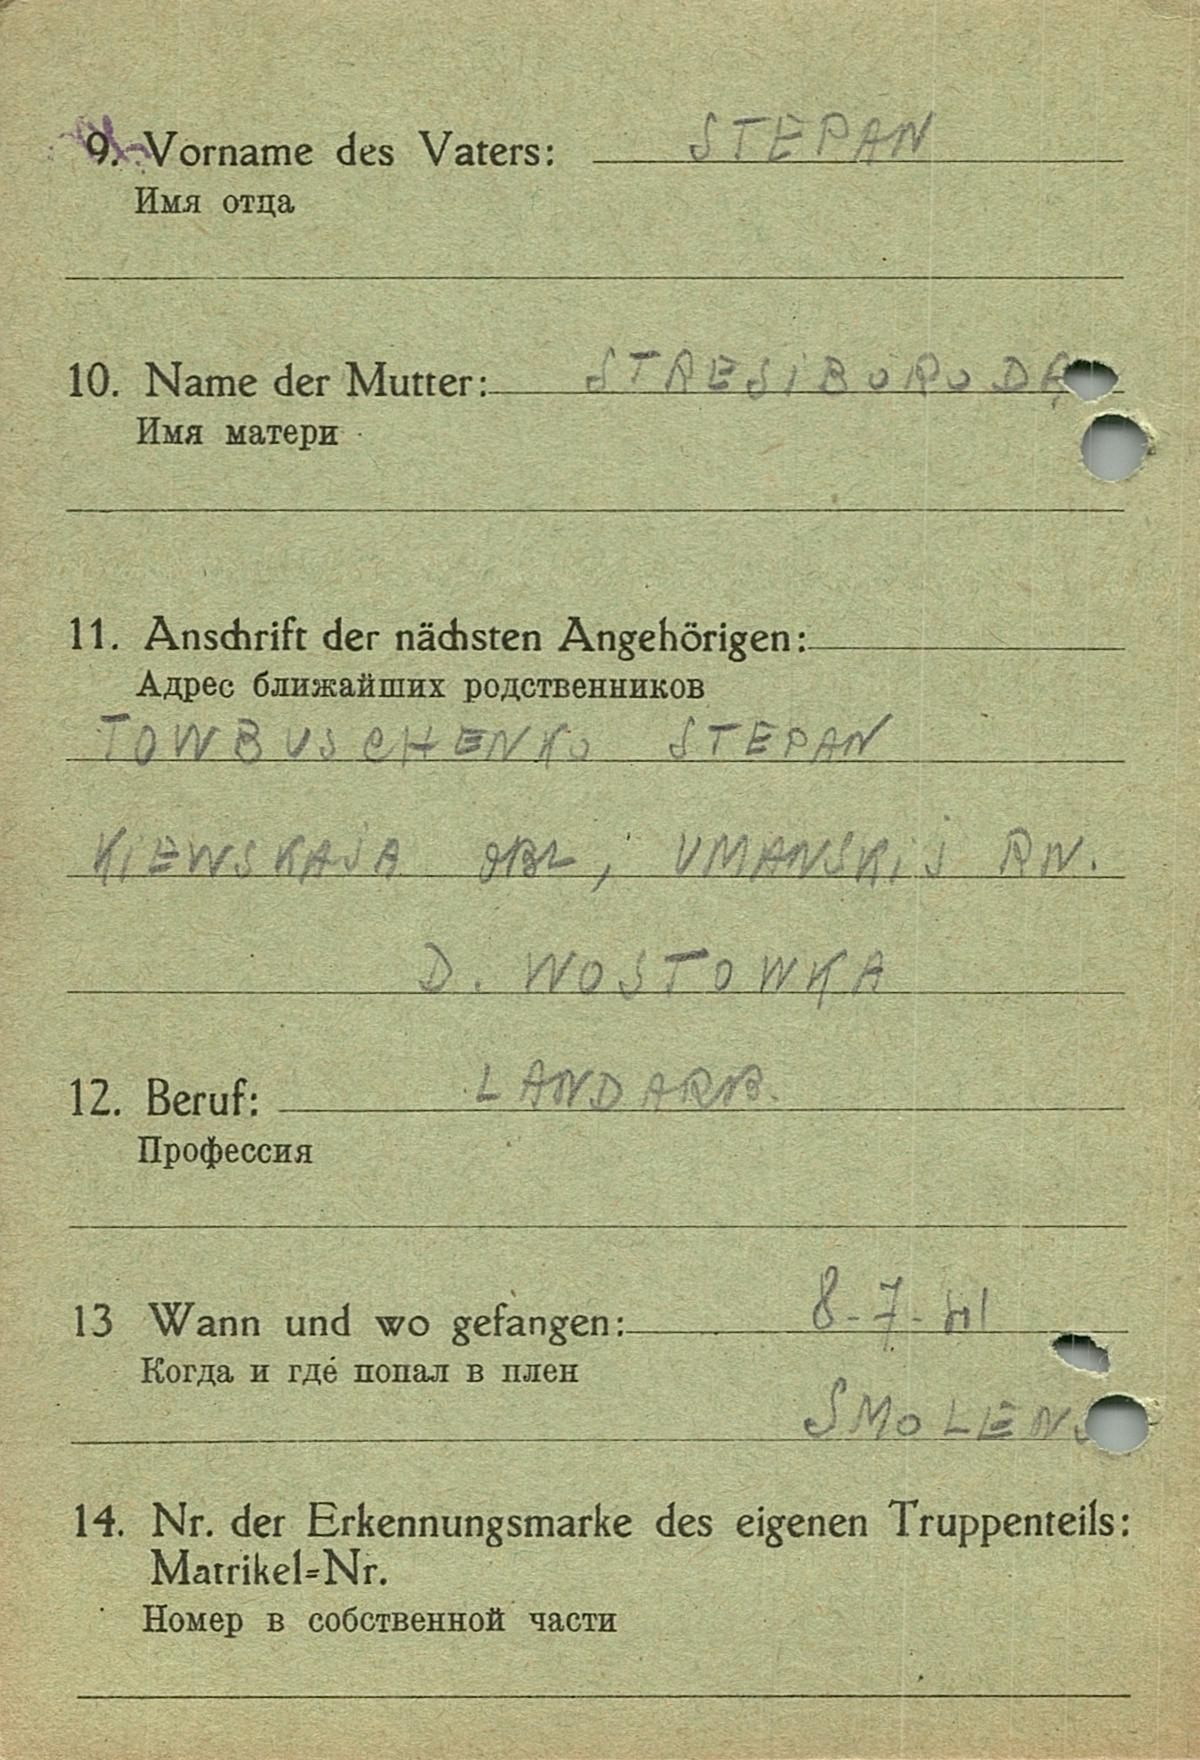 9. Vorname des Vaters: STEPAN
Имя отца
10. Name der Mutter: STRESIBORODA
Имя матери
11. Anschrift der nächsten Angehörigen:
Адрес ближайших родственников
TOWBUSCHENKO STEPAN
KIEWSKAJA OBL, UMANSKIJ RN.
D. WOSTOWKA
12. Beruf: LANDARB.
Профессия
13 Wann und wo gefangen: 8-7-41
Когда и где попал в плен
SMOLENS
14. Nr. der Erkennungsmarke des eigenen Truppenteils:
Matrikel=Nr.
Номер в собственной части